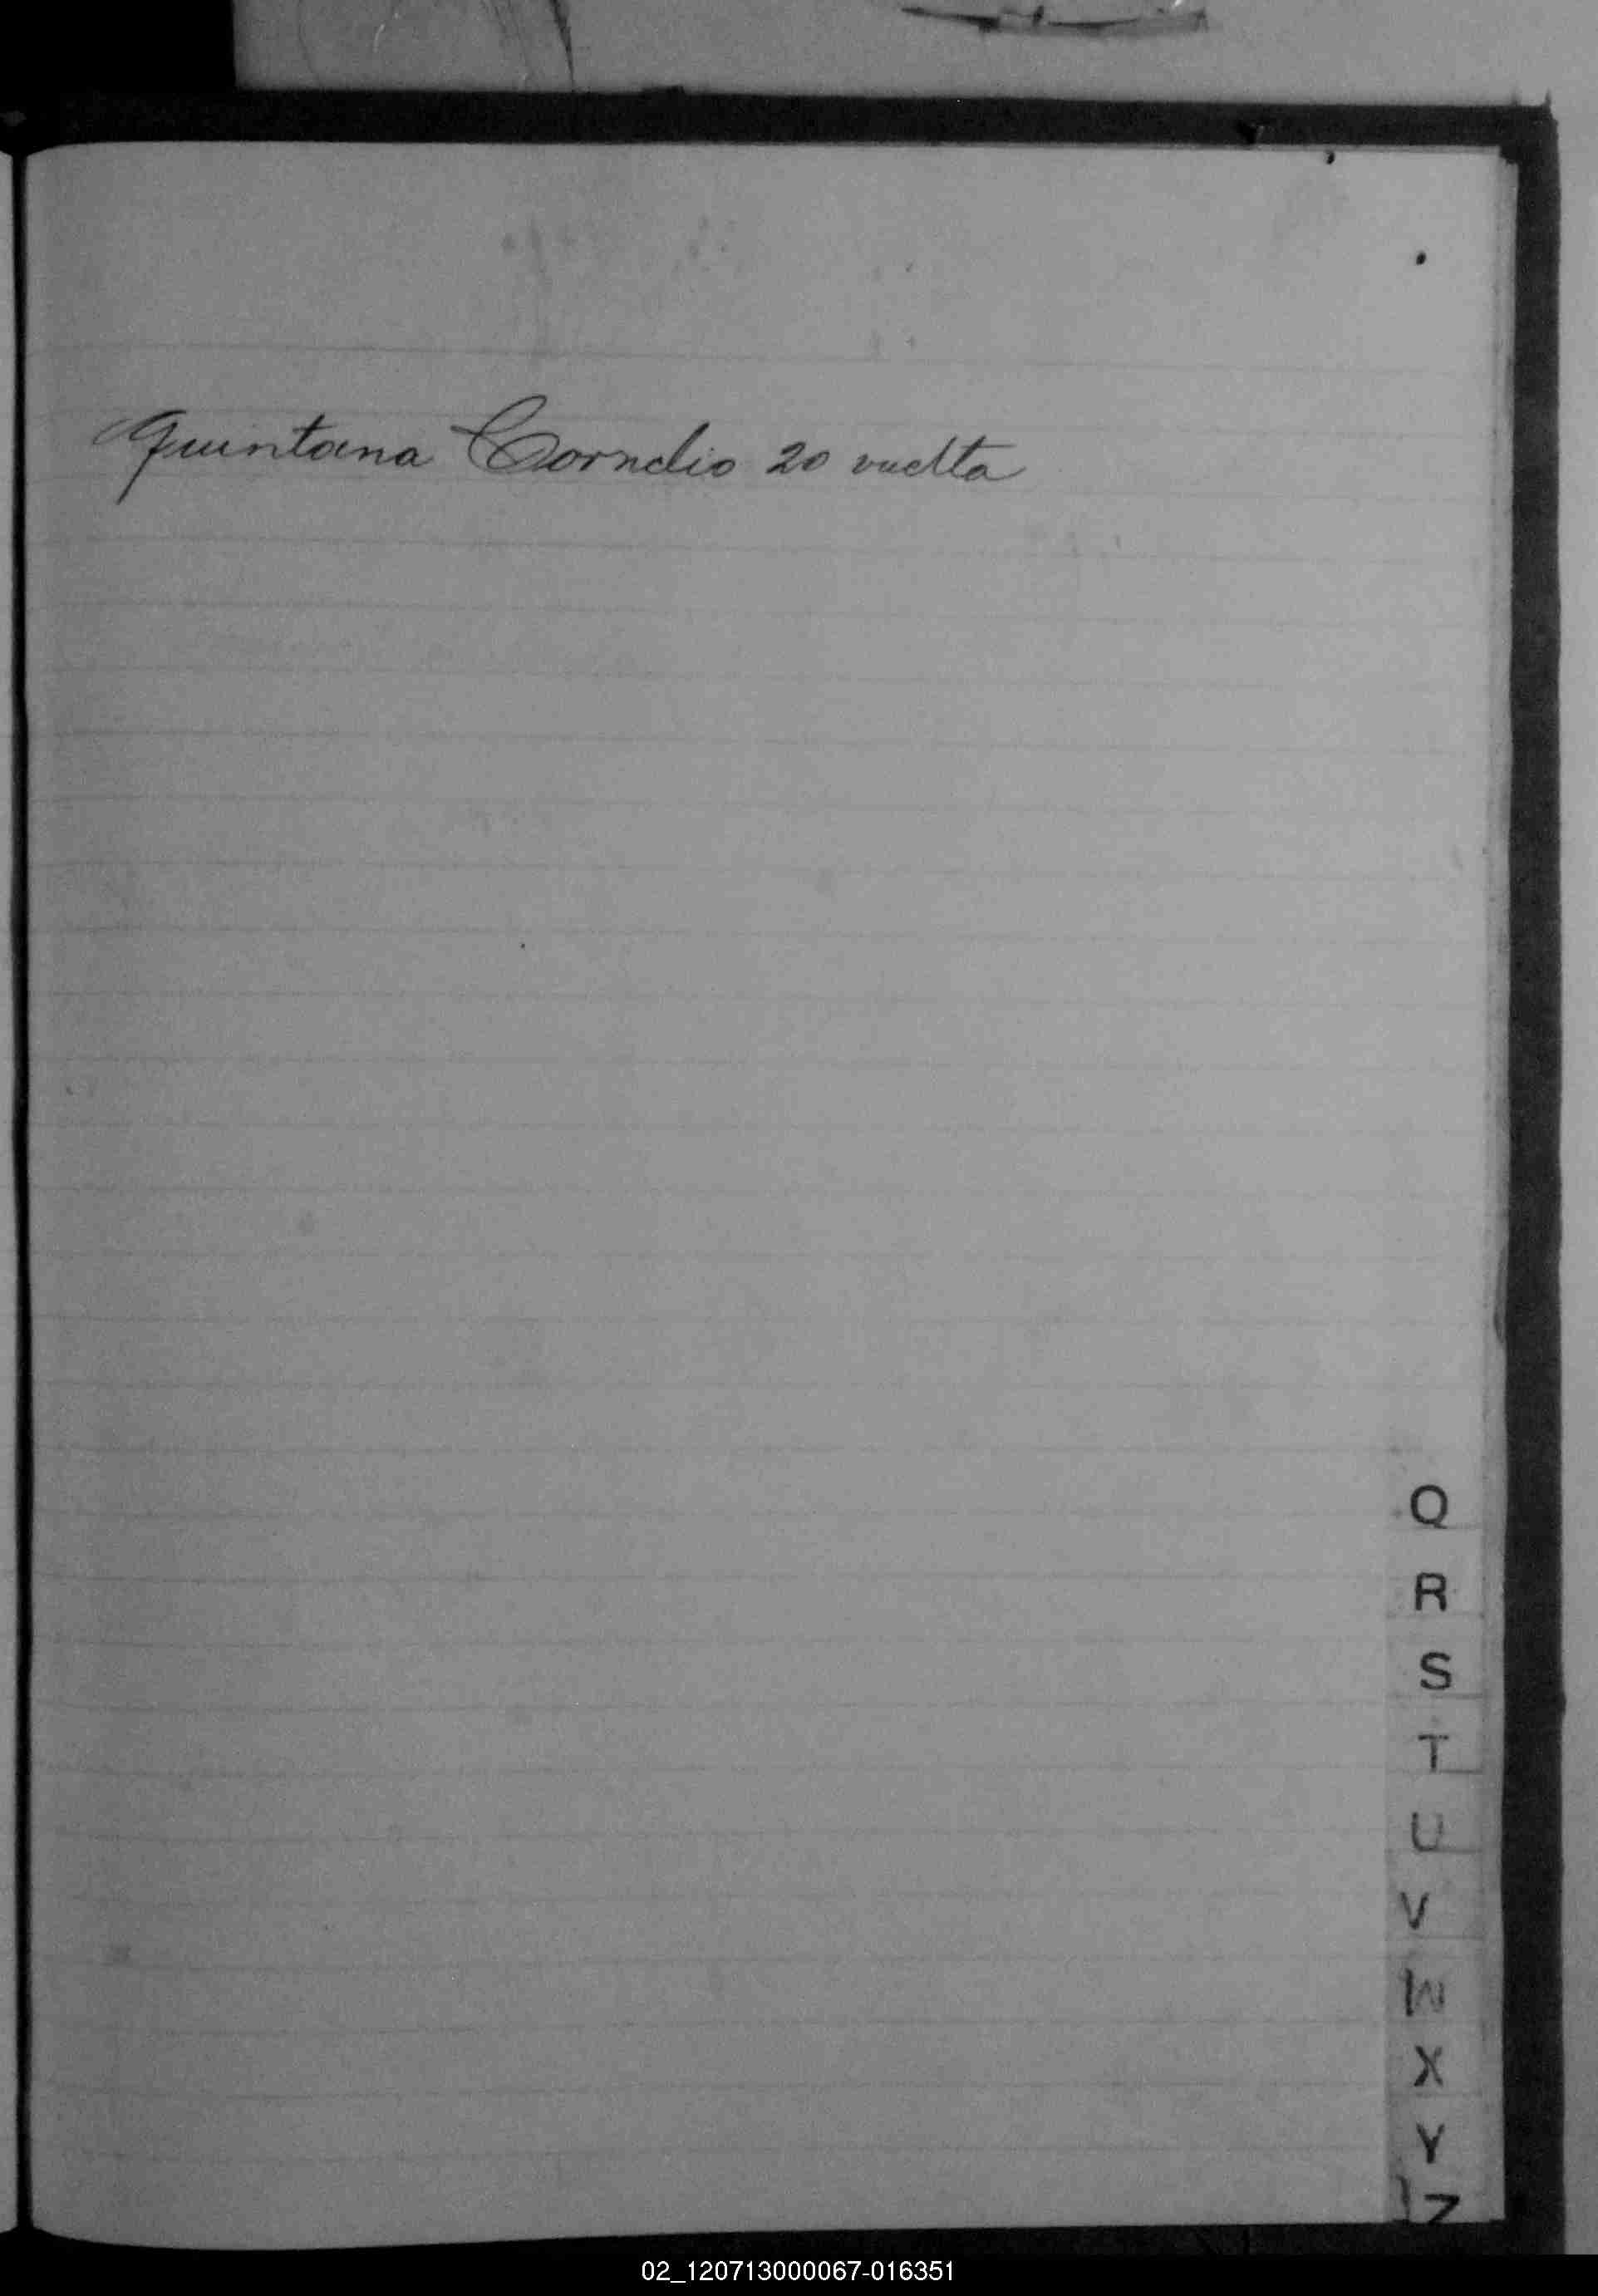 Quintana Cornelio 20 vuelta
Q
R
S
T
U
V
W
X
Y
Z
02_120713000067-016351